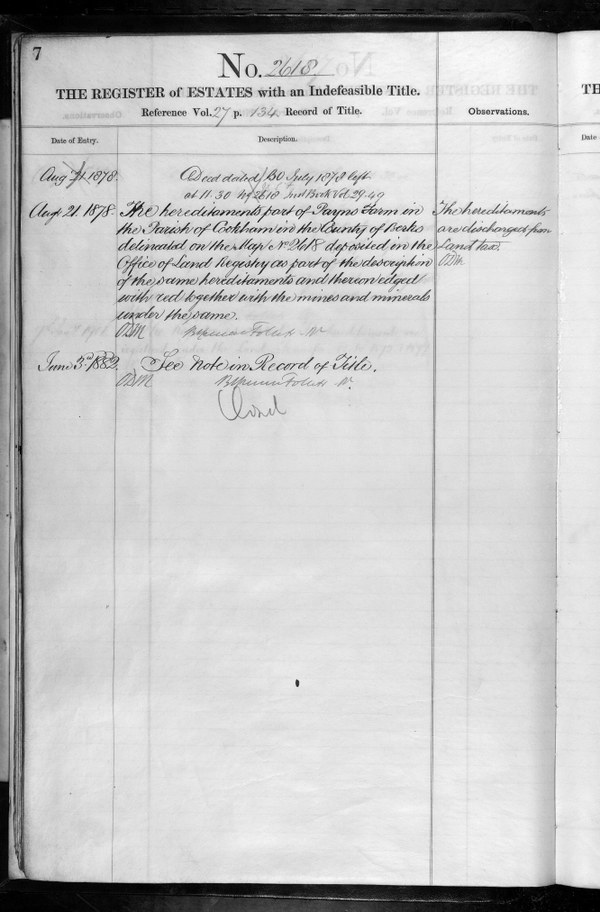 7
No. 2618
THE REGISTER of ESTATES with an Indefeasible Title.
Reference Vol. 27 p. 134 Record of Title.
Observations.
Date of Entry.
Description.
Aug 21 1878.
Deed dated 30 July 1878 left
at 11.30 No 2618 Vol 29.49
Augt 21. 1878.
The hereditaments part of Payns Farm in
the Parish of Cookham in the County of Berks
delineated on the Map No 2618 deposited in the
Office of Land Registry as part of the description
of the same hereditaments and thereon edged
with red together with the mines and minerals
under the same.
The hereditaments
are discharged from
Land tax.
June 3rd 1882.
See Note in Record of Title.
Closed
TH
Date